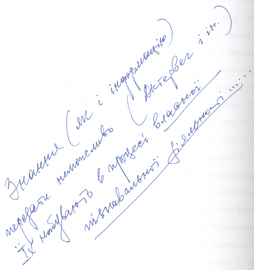 Знання (як і інформацію)
передати неможливо (Дістервег і ін.)
Їх набувають в процесі власної
пізнавальної діяльності .....